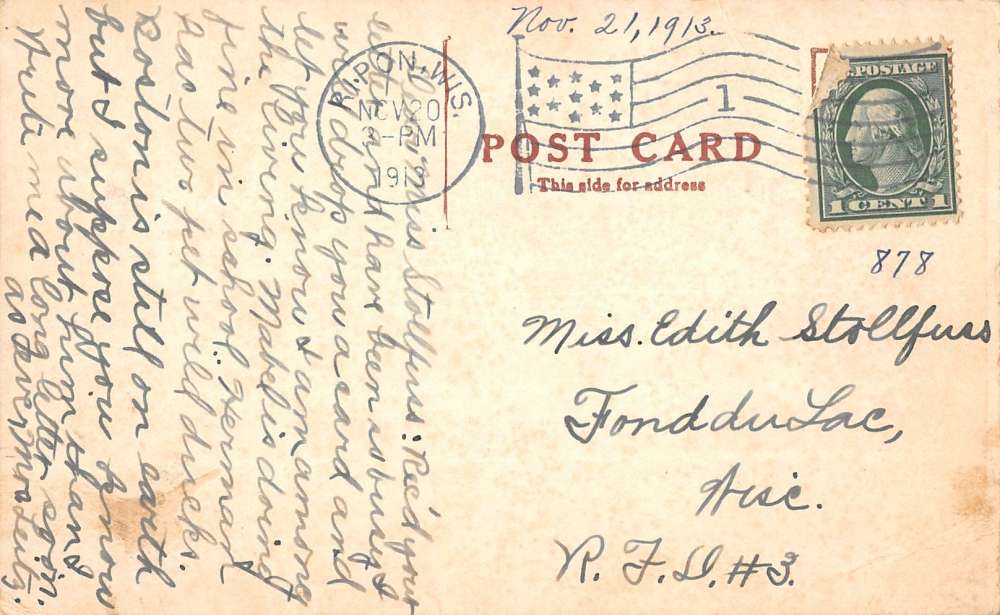 Nov. 21, 1913.
RIPON, WIS.
NOV 20
3-PM
191
1
POST CARD
This side for address
POSTAGE
1 CENT 1
878
Miss. Edith Stollfuss
Fond du Lac,
Wisc.
R. F. D. #3.
Miss Stollfuss: Rec'd your
and have been so busy I
will drop you a card and
let you know I am among
the living. Mabel is doing
fine in school. Herman
has two pet wild ducks.
Boston is still on earth
but I suppose you know
more about him than I
Write me a long letter soon.
as ever Mrs